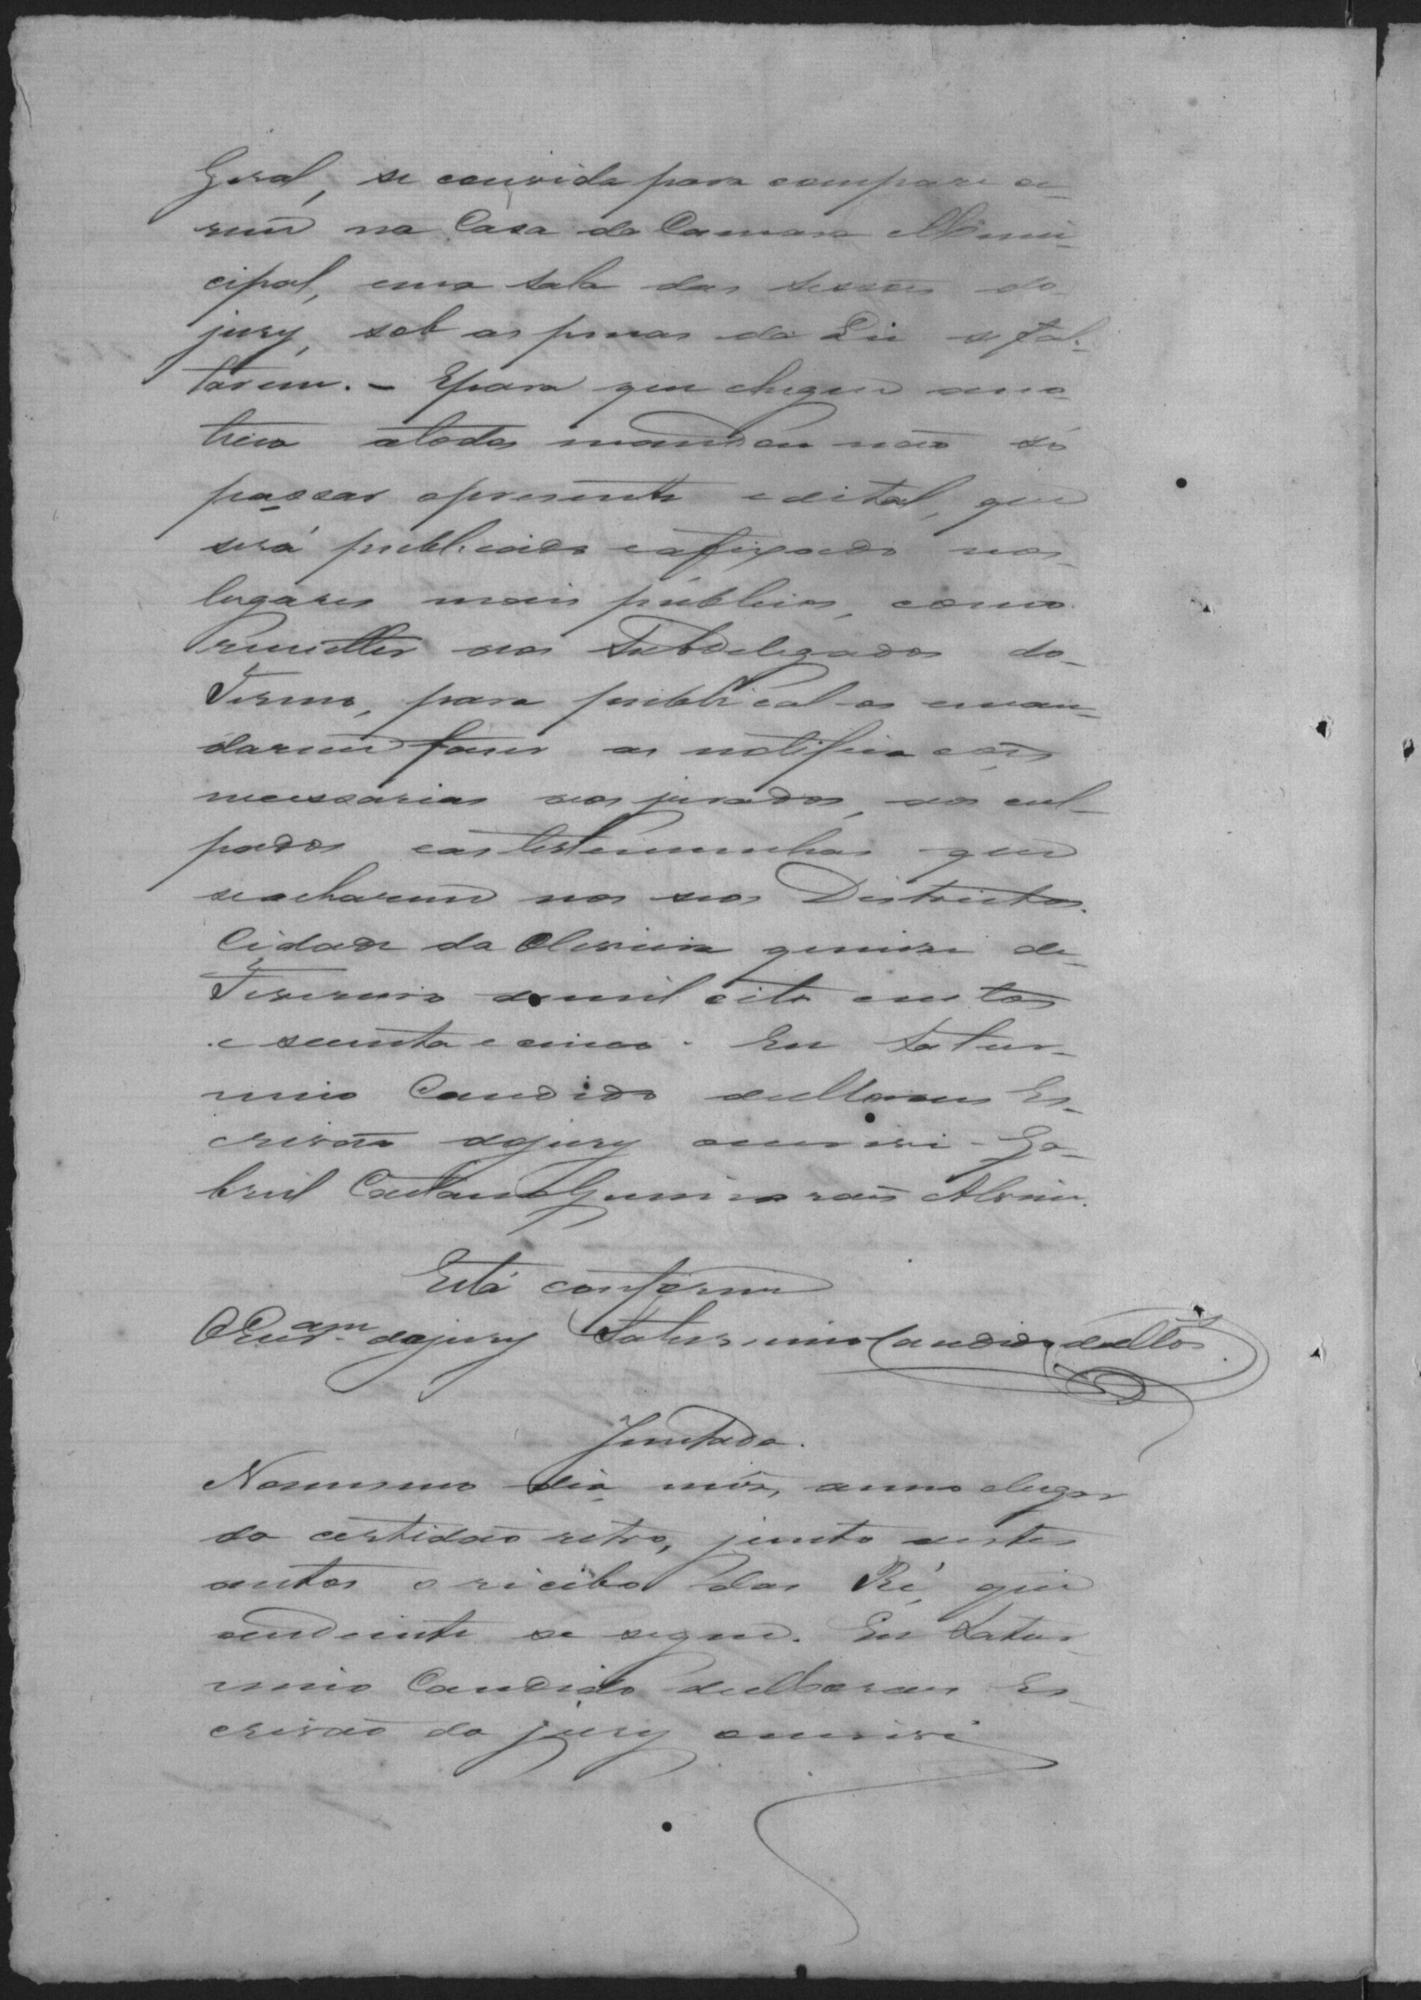 Geral, se convida para comparece-
rem na Casa da Camara Muni-
cipal, em a sala das sessoes do
jury, sob as penas da Lei se fal-
tarem. - E para que chegue a no-
ticia a todos mandou não só
passar o presente edital, que
será publicado e affixado nos
lugares mais públicos, como
remetter aos Subdelegados do
Termo, para publical-os e man-
darem fazer as notificações
necessárias aos jurados, aos cul-
pados e as testemunhas que
se acharem nos seos Districtos.
Cidade da Oliveira quinze de
Fevereiro de mil oito centos
e secenta e cinco. Eu Satur-
nino Candido de Moraes Es-
crivão do jury o escrevi - Ga-
briel Caetano Guimarães Alvim.
Está conforme
O Escr.am do jury Saturnino Candido de Mos
Juntada.
No mesmo dia, mês, anno e lugar
da certidão retro, junto a estes
autos o recibo das Ré, que
ao diante se segue. Eu Satur-
nino Candido de Moraes Es-
crivão do jury o escrevi